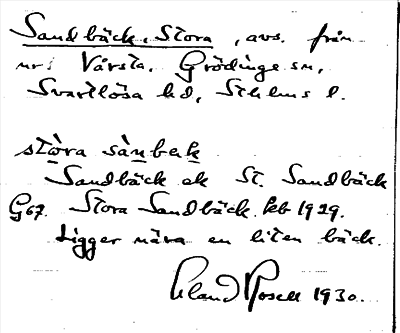 Sandbäck, Stora, avs. från
nr: Vårsta, Grödinge sn,
Svartlösa hd, Sthlms l.
stòra sànbek
Sandbäck ek St. Sandbäck
G67. Stora Sandbäck kb 1929.
Ligger nära en liten bäck.
Erland Rosell 1930.